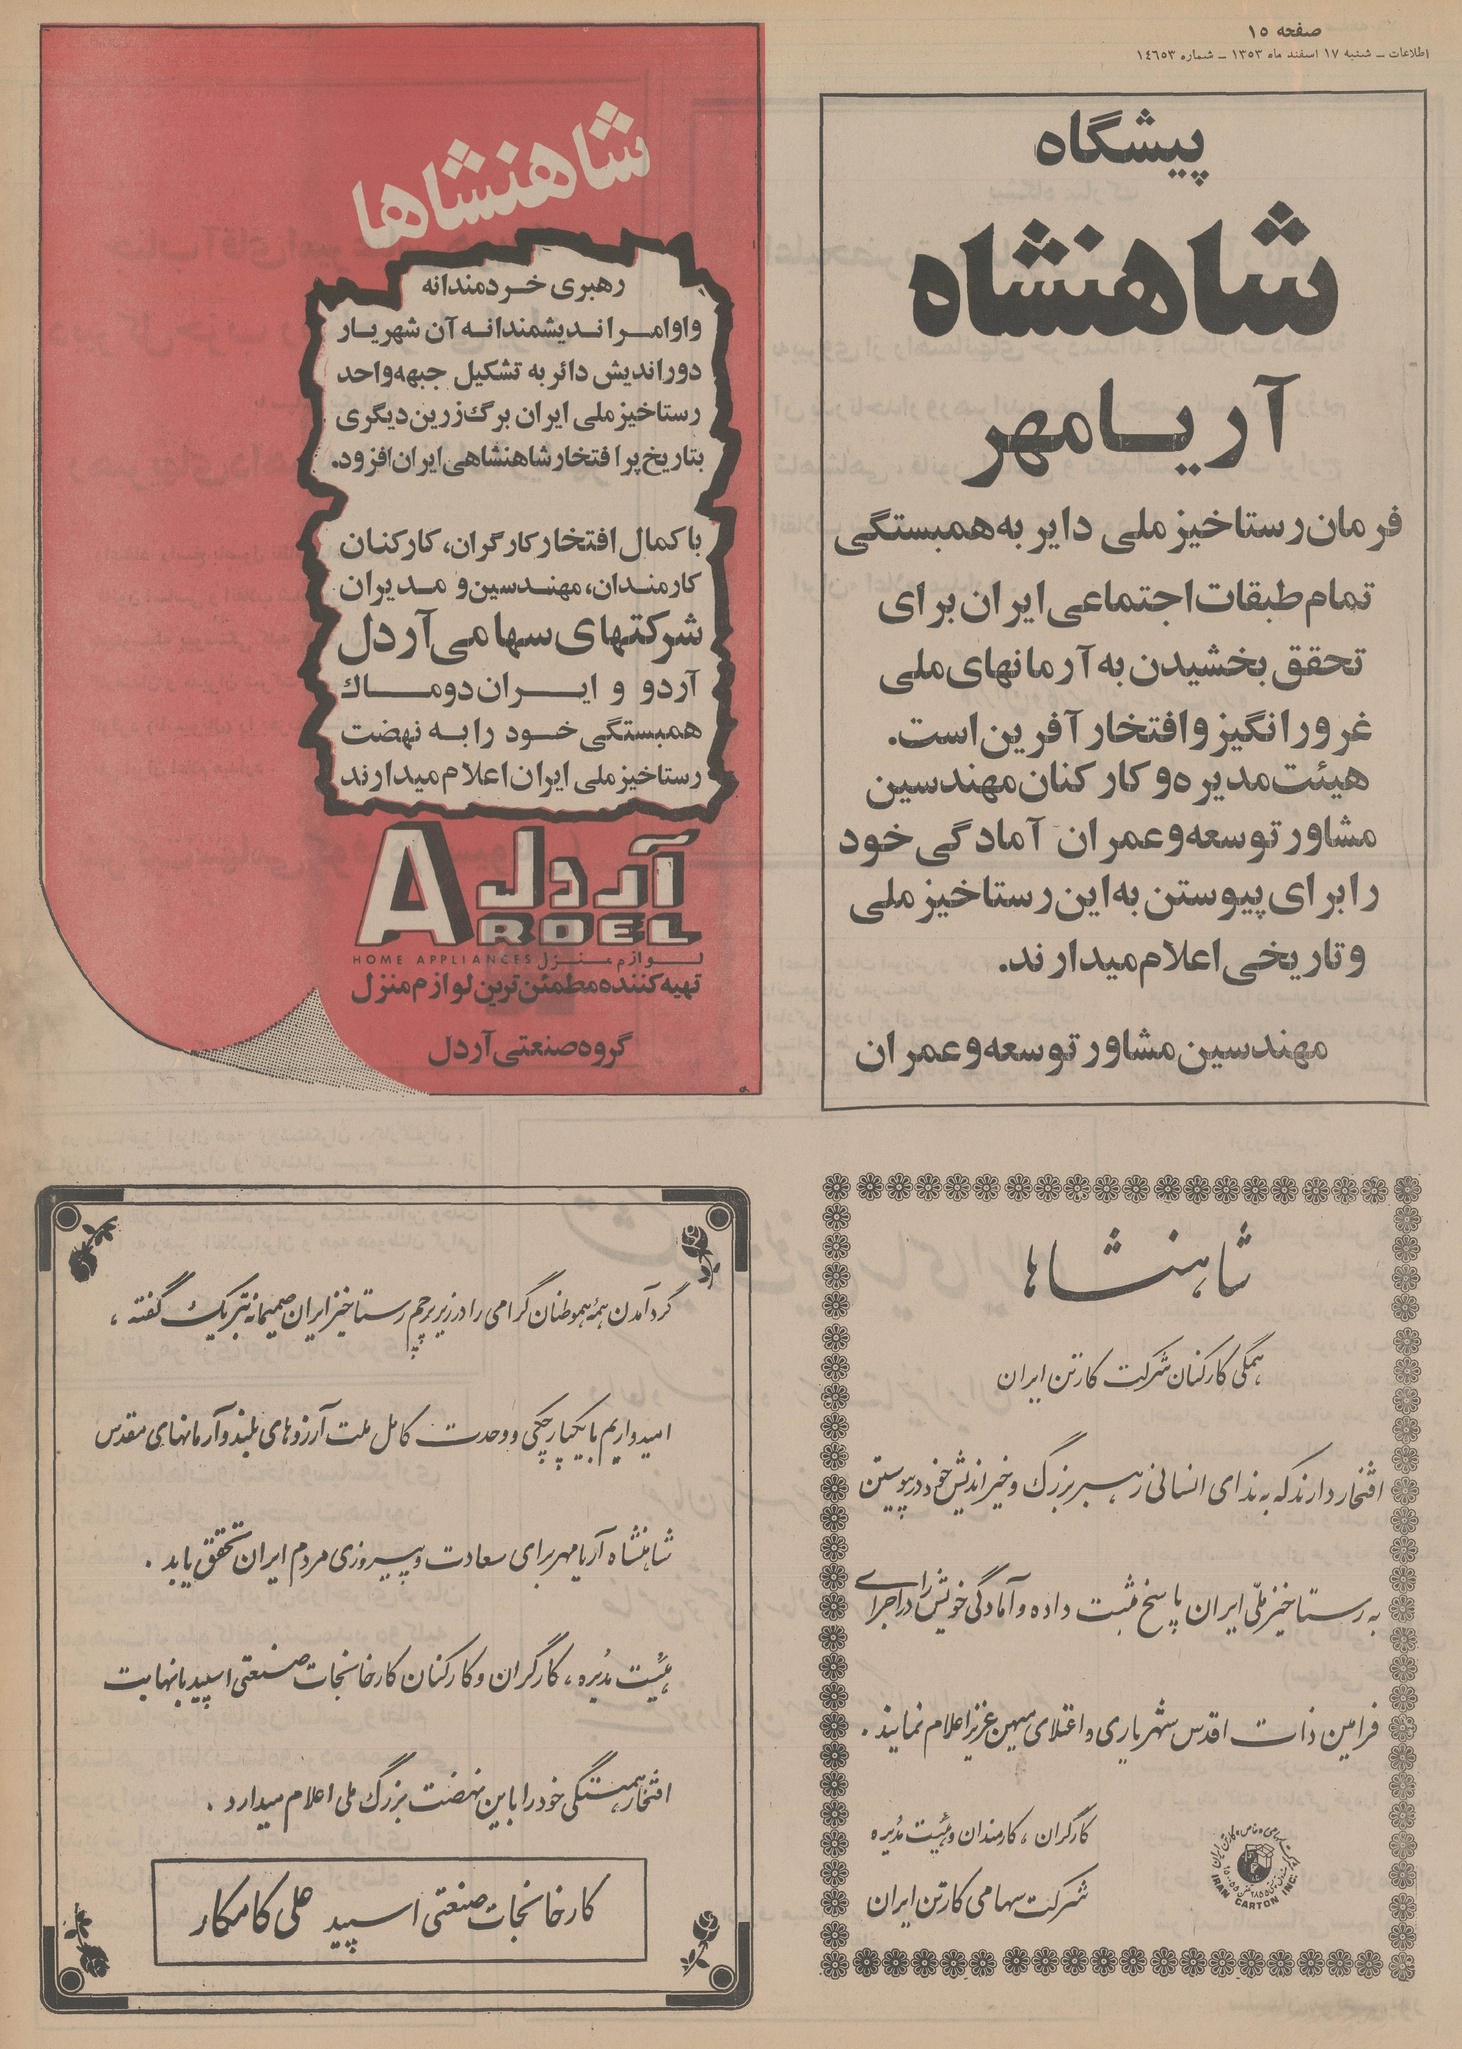 صفحه ۱۵
اطلاعات ــ شنبه ۱۷ اسفند ماه ۱۳۵۳ ــ شماره ۱٤٦٥۳
پیشگاه
شاهنشاه
آریامهر
فرمان رستاخیز ملی دایر به همبستگی
تمام طبقات اجتماعی ایران برای
تحقق بخشیدن به آرمانهای ملی
غرورانگیز و افتخار آفرین است.
هیئت مدیره و کارکنان مهندسین
مشاور توسعه و عمران آمادگی خود
را برای پیوستن به این رستاخیز ملی
و تاریخی اعلام میدارند.
مهندسین مشاور توسعه و عمران
شاهنشاها
رهبری خردمندانه
و اوامر اندیشمندانه آن شهریار
دوراندیش دائر به تشکیل جبهه واحد
رستاخیز ملی ایران برگ زرین دیگری
بتاریخ پر افتخار شاهنشاهی ایران افزود.
با کمال افتخار کارگران، کارکنان
کارمندان، مهندسین و مدیران
شرکتهای سهامی آردل
آردو و ایران دوماک
همبستگی خود را به نهضت
رستاخیز ملی ایران اعلام میدارند
آردل
ARDEL
لوازم منزل HOME APPLIANCES
تهیه کننده مطمئن ترین لوازم منزل
گروه صنعتی آردل
شاهنشاها
همگی کارکنان شرکت کارتن ایران
افتخار دارند که به ندای انسانی رهبر بزرگ و خیراندیش خود در پیوستن
به رستاخیز ملّی ایران پاسخ مثبت داده و آمادگی خویش را در اجرای
فرامین ذات اقدس شهریاری و اعتلای میهن عزیز اعلام نمایند.
کارگران، کارمندان و هیئت مدیره
شرکت سهامی کارتن ایران
IRAN CARTON INC.
گردآمدن همه هموطنان گرامی را در زیر پرچم رستاخیز ایران صمیمانه تبریک گفته،
امیدواریم با یکپارچگی و وحدت کامل ملت آرزوهای بلند و آرمانهای مقدس
شاهنشاه آریامهر برای سعادت و پیروزی مردم ایران تحقق یابد.
هیئت مدیره، کارگران و کارکنان کارخانجات صنعتی اسپید با نهایت
افتخار همبستگی خود را باین نهضت بزرگ ملی اعلام میدارد.
کارخانجات صنعتی اسپید علی کامکار